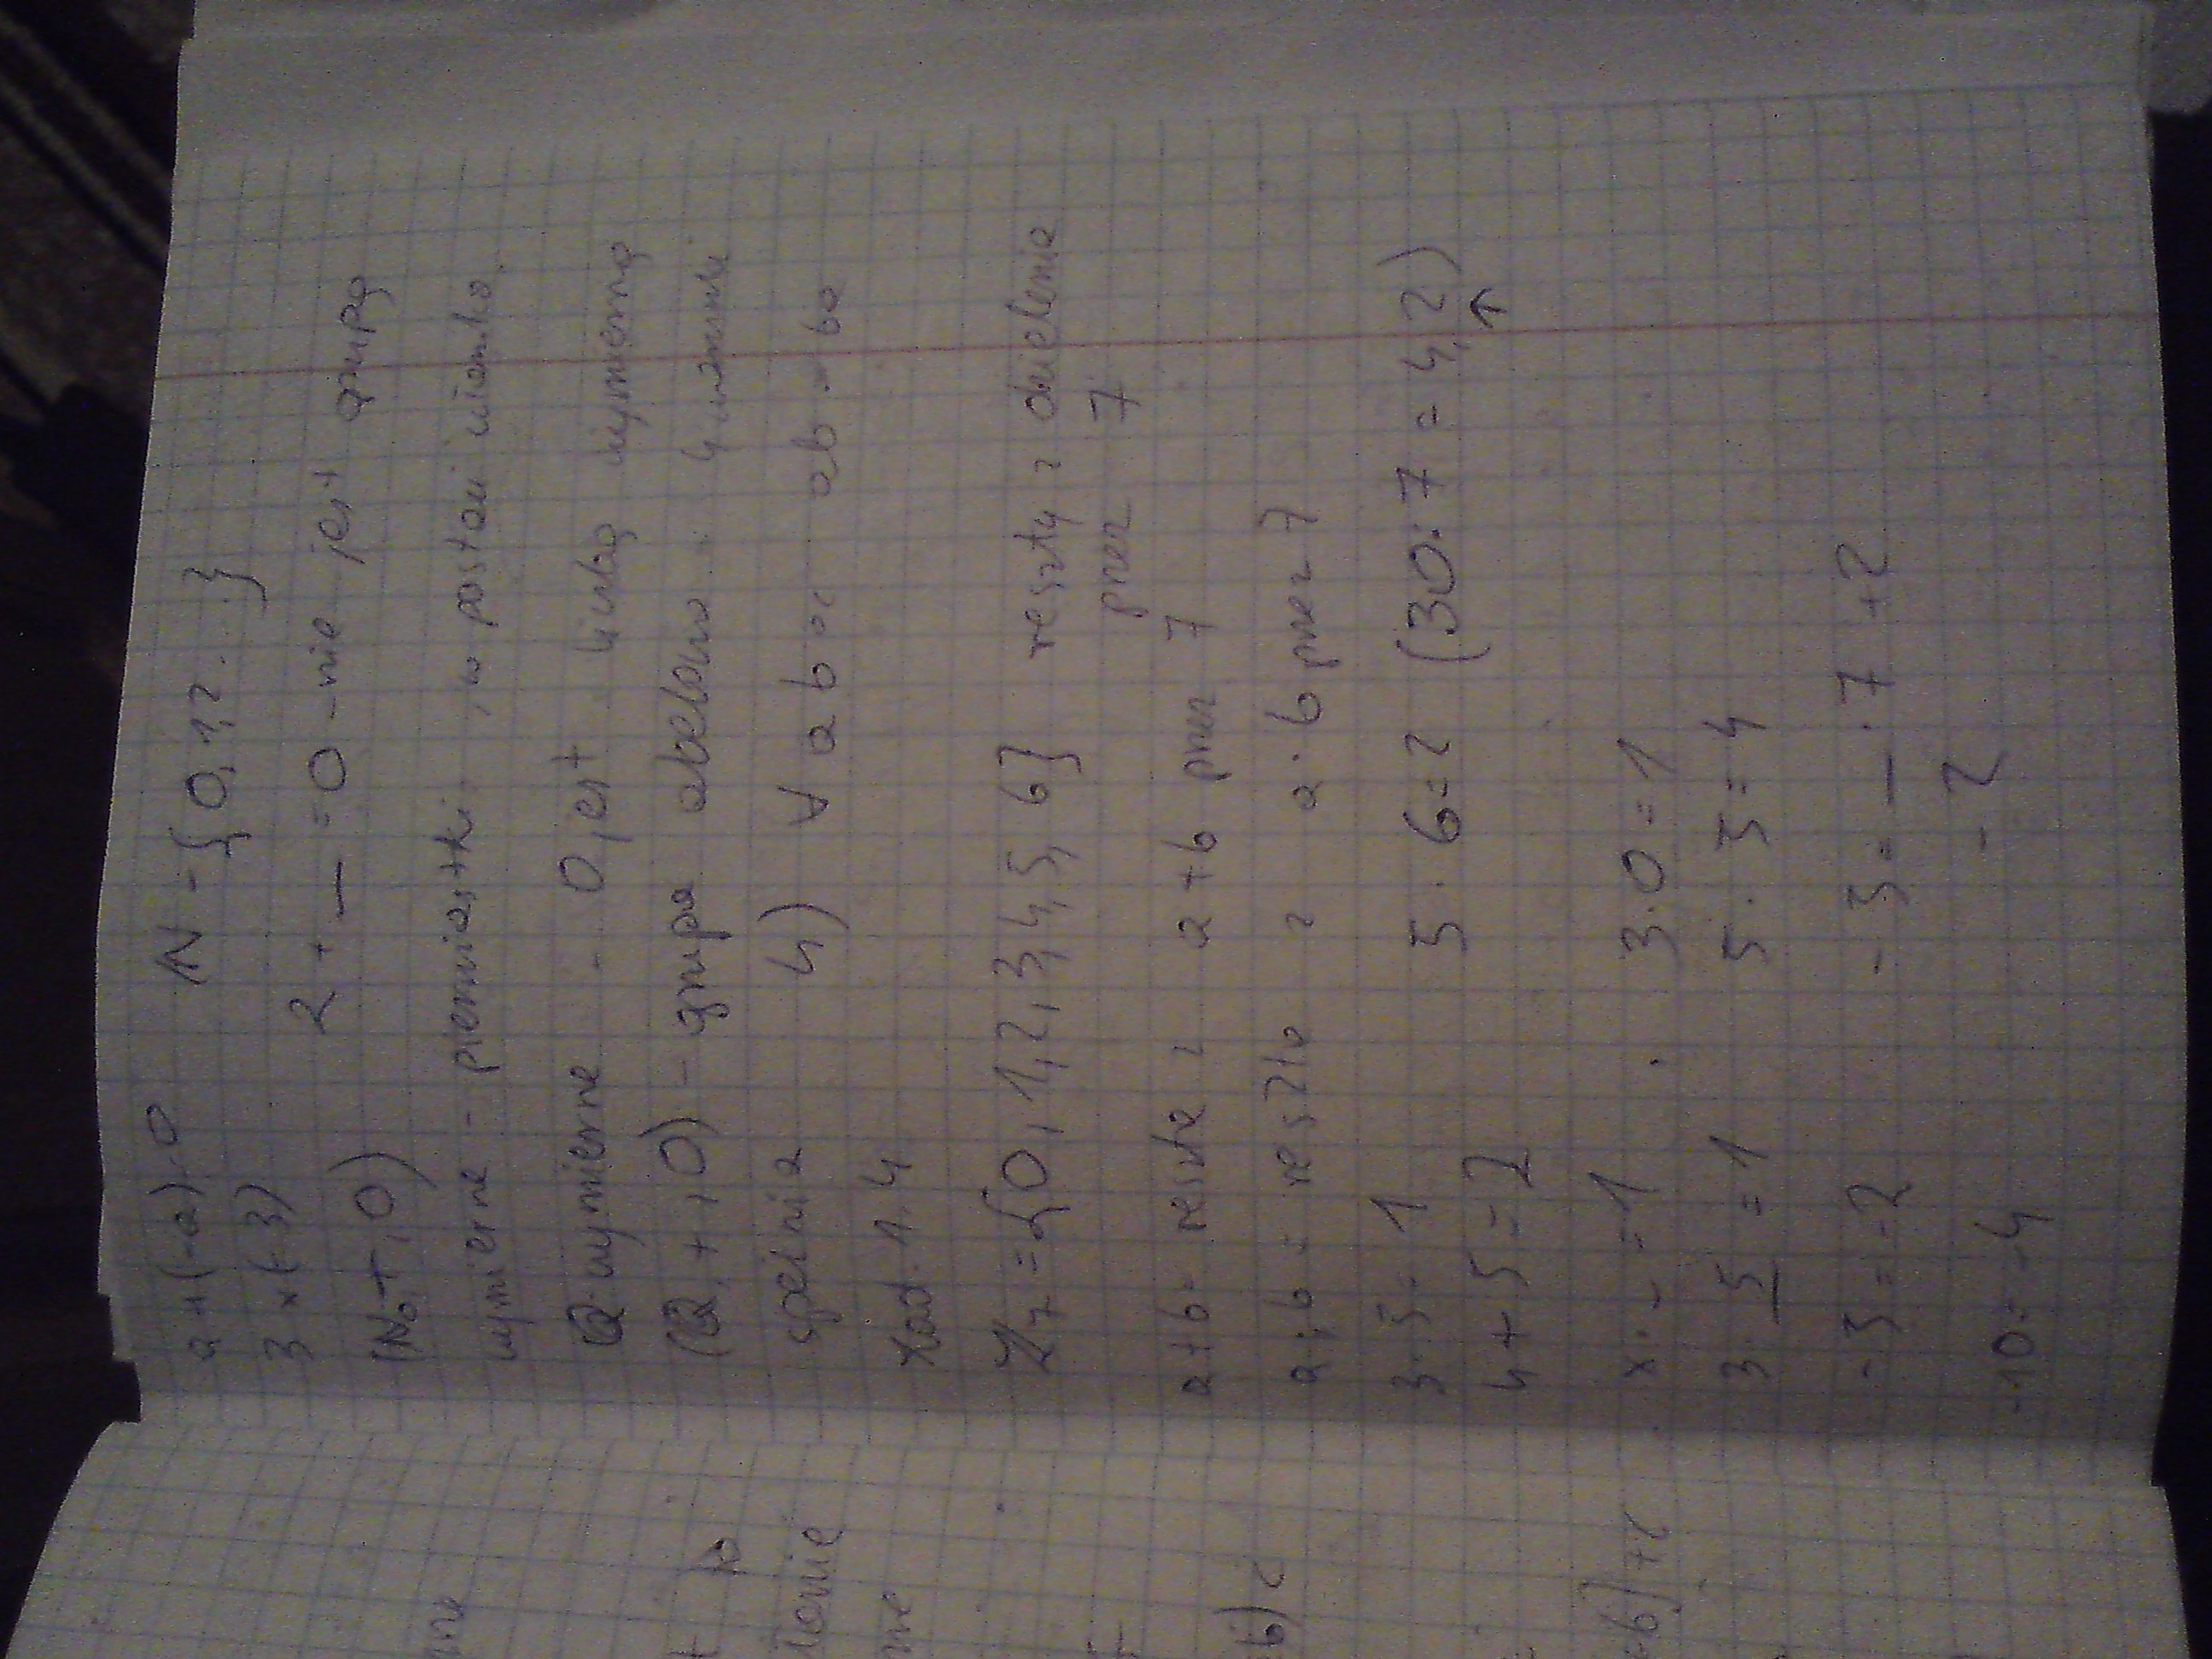 a + (-a) = 0 N = {0, 1, 2 . . .}
3 + (-3) 2 + _ = 0 - nie jest grupą
(N₀, +, 0)
wymierne - pierwiastki, w postaci ułamka
Q - wymierne - 0 jest liczbą wymierną
(Q, +, 0) - grupa abelowa 4 warunki
spełnia 4) ∀ a b ab = ba
Zad. 1.4
Z₇ = {0, 1, 2, 3, 4, 5, 6} reszty z dzielenia
przez 7
a + b = reszta z a + b przez 7
a · b = reszta z a · b przez 7
3 · 5 = 1 5 · 6 = 2 (30 : 7 = 4, 2)
↑
4 + 5 = 2
x · _ = 1 3 · 0 = 1
3 · 5 = 1 5 · 5 = 4
-5 = -2 -5 = _ · 7 + 2
-10 = -4 - 2
łonie
b) c
b) + c